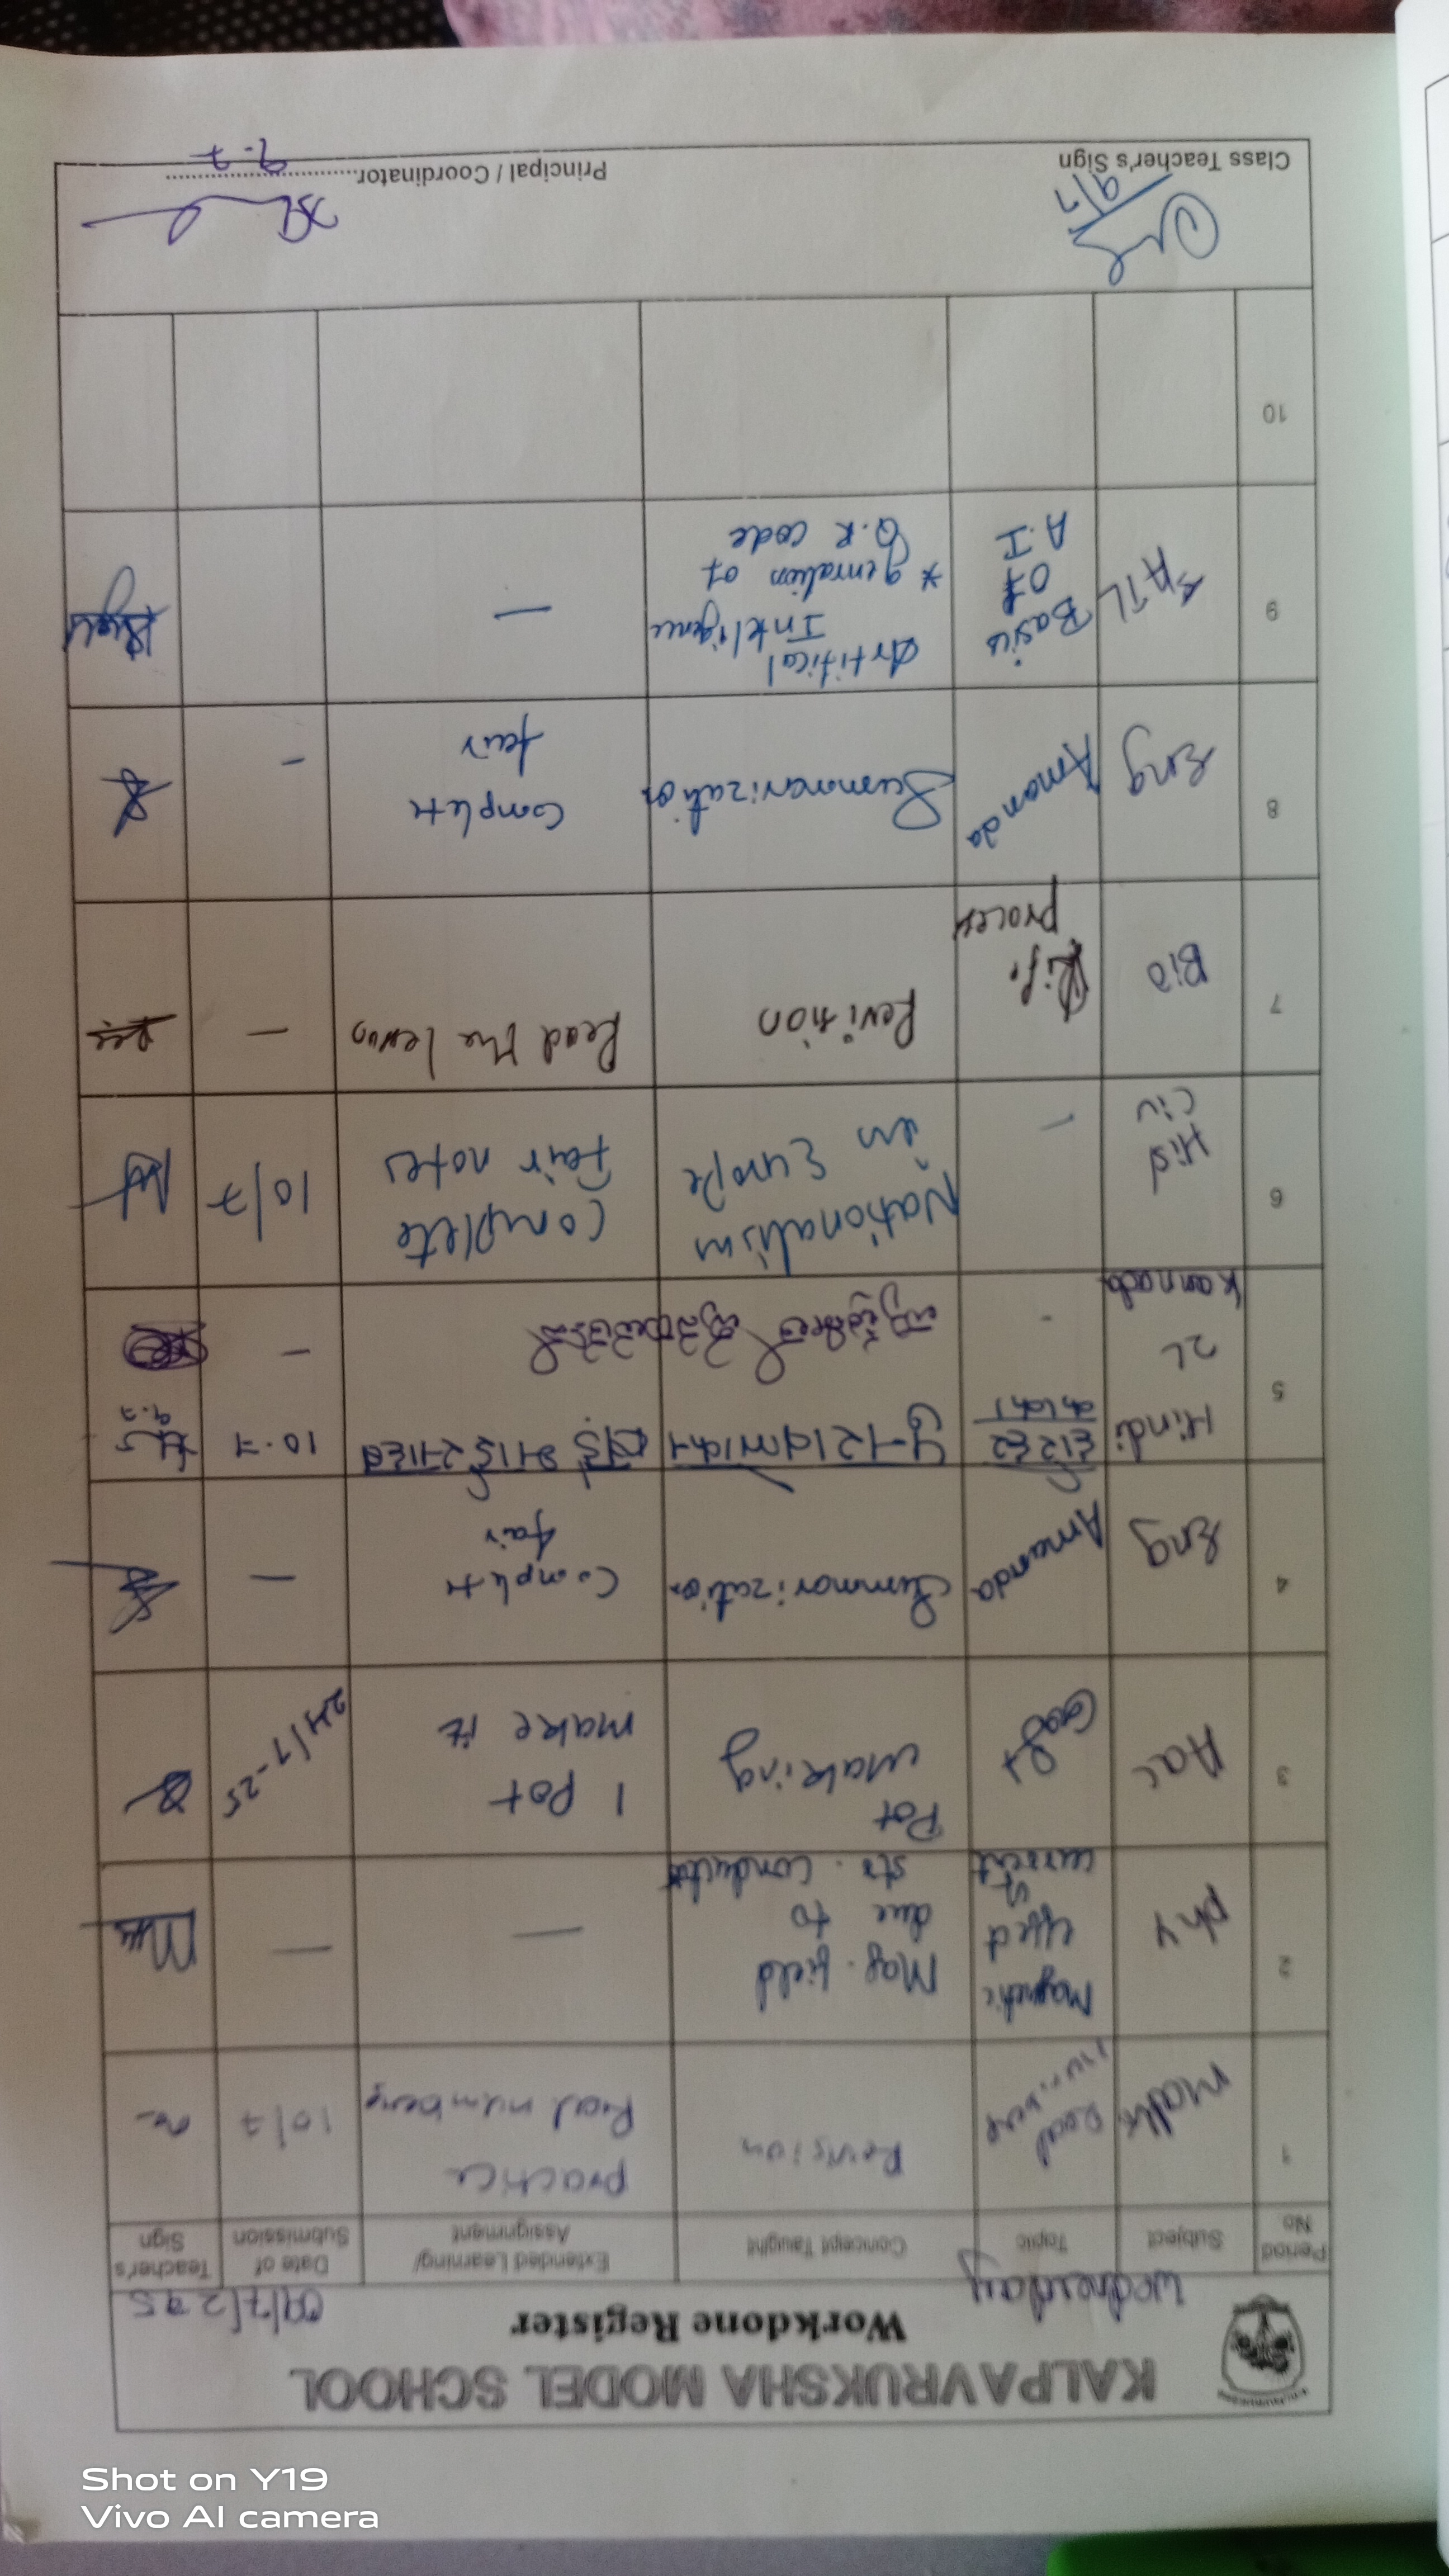 KALPAVRUKSHA MODEL SCHOOL
Workdone Register
Wednesday
09/7/295
Period No
Subject
Topic
Concept Taught
Extended Learning/ Assignment
Date of Submission
Teacher's Sign
1
Maths
Real numbers
Revision
practice
Real numbers
10/7
2
Phy
Magnetic
effect
of
current
Mag. field
due to
str. conductor
—
—
3
Aac
Craft
Pot
making
1 Pot
make it
24/7-25
4
Eng
Amanda
Summarization
Complete
fair
—
5
Hindi
2L
Kannada
-
10.7
9.7
—
6
Hist
Civ
—
Nationalism
in Europe
Complete
Fair notes
10/7
7
Bio
Life
process
Revision
Read the lesson
—
8
Eng
Amanda
Summarization
Complete
fair
-
9
Basis
Of
A.I
Artifical
Inteligence
* genration of
Q.R code
—
10
Class Teacher's Sign
9/7
Principal / Coordinator
9.7
Shot on Y19
Vivo AI camera